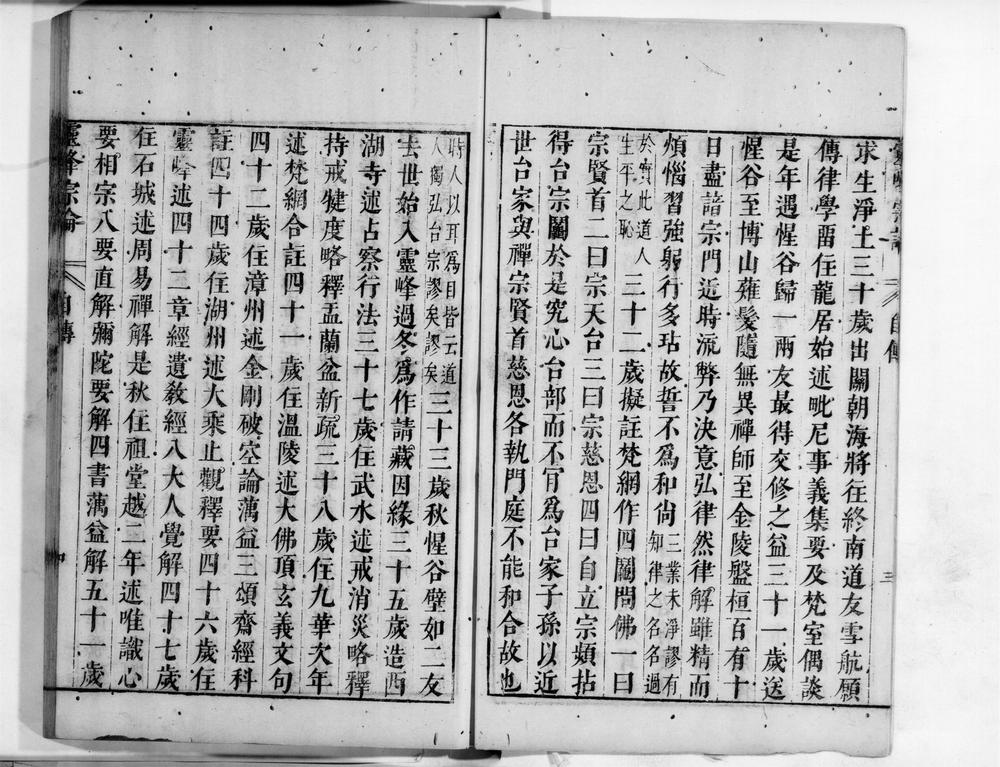 靈峰宗論
自傳
三
求生淨土三十歲出關朝海將往終南道友雪航願
傳律學畱住龍居始述毗尼事義集要及梵室偶談
是年遇惺谷歸一兩友最得交修之益三十一歲送
惺谷至博山薙髮隨無異禪師至金陵盤桓百有十
日盡諳宗門近時流弊乃決意弘律然律解雖精而
煩惱習強躬行多玷故誓不爲和尙三業未淨謬有知律之名名過
於實此道人生平之恥三十二歲擬註梵網作四鬮問佛一曰
宗賢首二曰宗天台三曰宗慈恩四曰自立宗頻拈
得台宗鬮於是究心台部而不肎爲台家子孫以近
世台家與禪宗賢首慈恩各執門庭不能和合故也
時人以耳爲目皆云道人獨弘台宗謬矣謬矣三十三歲秋惺谷壁如二友
去世始入靈峰過冬爲作請藏因緣三十五歲造西
湖寺述占察行法三十七歲住武水述戒消災略釋
持戒犍度略釋盂蘭盆新疏三十八歲住九華次年
述梵網合註四十一歲住溫陵述大佛頂玄義文句
四十二歲住漳州述金剛破空論蕅益三頌齋經科
註四十四歲住湖州述大乘止觀釋要四十六歲住
靈峰述四十二章經遺敎經八大人覺解四十七歲
住石城述周易禪解是秋住祖堂越二年述唯識心
要相宗八要直解彌陀要解四書蕅益解五十一歲
靈峰宗論
自傳